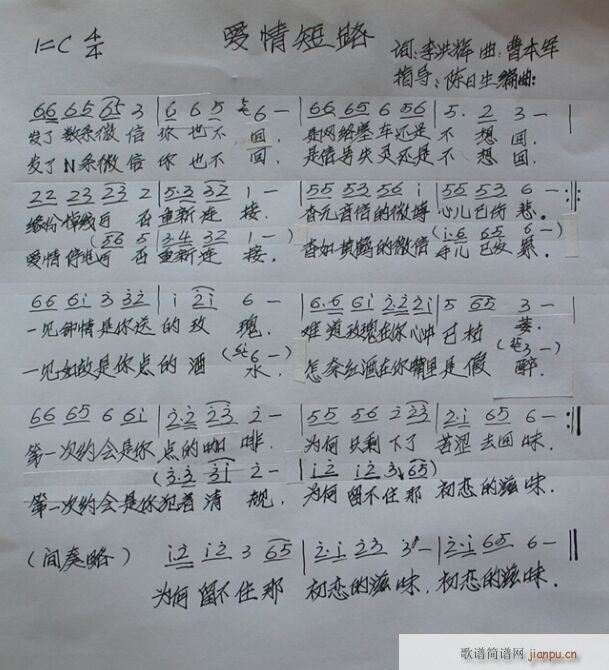 爱情短路
1=C 4/4
词:李洪辉 曲:曹本军
指导:陈日生 编曲:
66 65 65 3 | 6 6 5 6 - | 66 65 6 56 | 5. 2 3 - |
发了数条微信 你也不回. 是网络塞车还是不想回.
发了N条微信 你也不回. 是信号失灵还是不想回.
22 23 23 2 | 5·3 32 1 - | 55 53 56 i | 55 53 6 - :||
缘份掉线可否重新连接. 杳无音信的微博 心儿已伤悲.
(56 5 | 3·4 32 1 -) (i·6 65 6 -)
爱情停电可否重新连接. 杳如黄鹤的微信
66 6i 3 32 | i 2i 6 - | 6·6 6i 2·2 2i | 5 65 3 - |
一见钟情是你送的玫瑰. 难道玫瑰在你心中已枯萎.
一见如故是你点的酒水. 怎奈红酒在你嘴里是假醉.
66 65 6 6i | 2·2 23 2 - | 55 56 2 23 | 2·i 65 6 - :||
第一次约会是你点的咖啡. 为何只剩下了苦涩去回味.
(3·3 3i 2 - | i2 i2 3 65)
第一次约会是你 清靓. 为何留不住那初恋的滋味.
(间奏略) i2 i2 3 65 | 2·i 23 3 - | 2·i 65 6 - ||
为何留不住那 初恋的滋味. 初恋的滋味.
歌谱简谱网
jianpu.cn